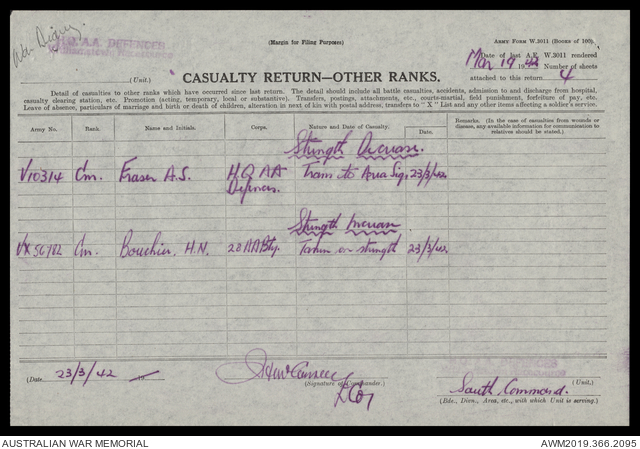 War Diary.
H.Q. A.A. DEFENCES
(Margin for Filing Purposes)
ARMY FORM W.3011 (BOOKS OF 100).
Date of last A.F. W.3011 rendered
Mar 19 1942 Number of sheets
attached to this return 4
(Unit.)
CASUALTY RETURN—OTHER RANKS.
Detail of casualties to other ranks which have occurred since last return. The detail should include all battle casualties, accidents, admission to and discharge from hospital,
casualty clearing station, etc. Promotion (acting, temporary, local or substantive). Transfers, postings, attachments, etc., courts-martial, field punishment, forfeiture of pay, etc.
Leave of absence, particulars of marriage and birth or death of children, alteration in next of kin with postal address, transfers to "X" List and any other items affecting a soldier's service.
Army No. Rank. Name and Initials. Corps. Nature and Date of Casualty. Date. Remarks. (In the case of casualties from wounds or disease, any available information for communication to relatives should be stated.)
Strength Decrease.
V10314 Gnr. Fraser A.S. H.Q AA Defences. Trans to Area Sig. 23/3/42.
Strength Increase
VX56782 Gnr. Bouchier, H.N. 28 AA Bty. Taken on strength 23/3/42.
(Date 23/3/42 19
(Signature of Commander.)
(Unit.)
South Command.
(Bde., Divn., Area, etc., with which Unit is serving.)
AUSTRALIAN WAR MEMORIAL
AWM2019.366.2095